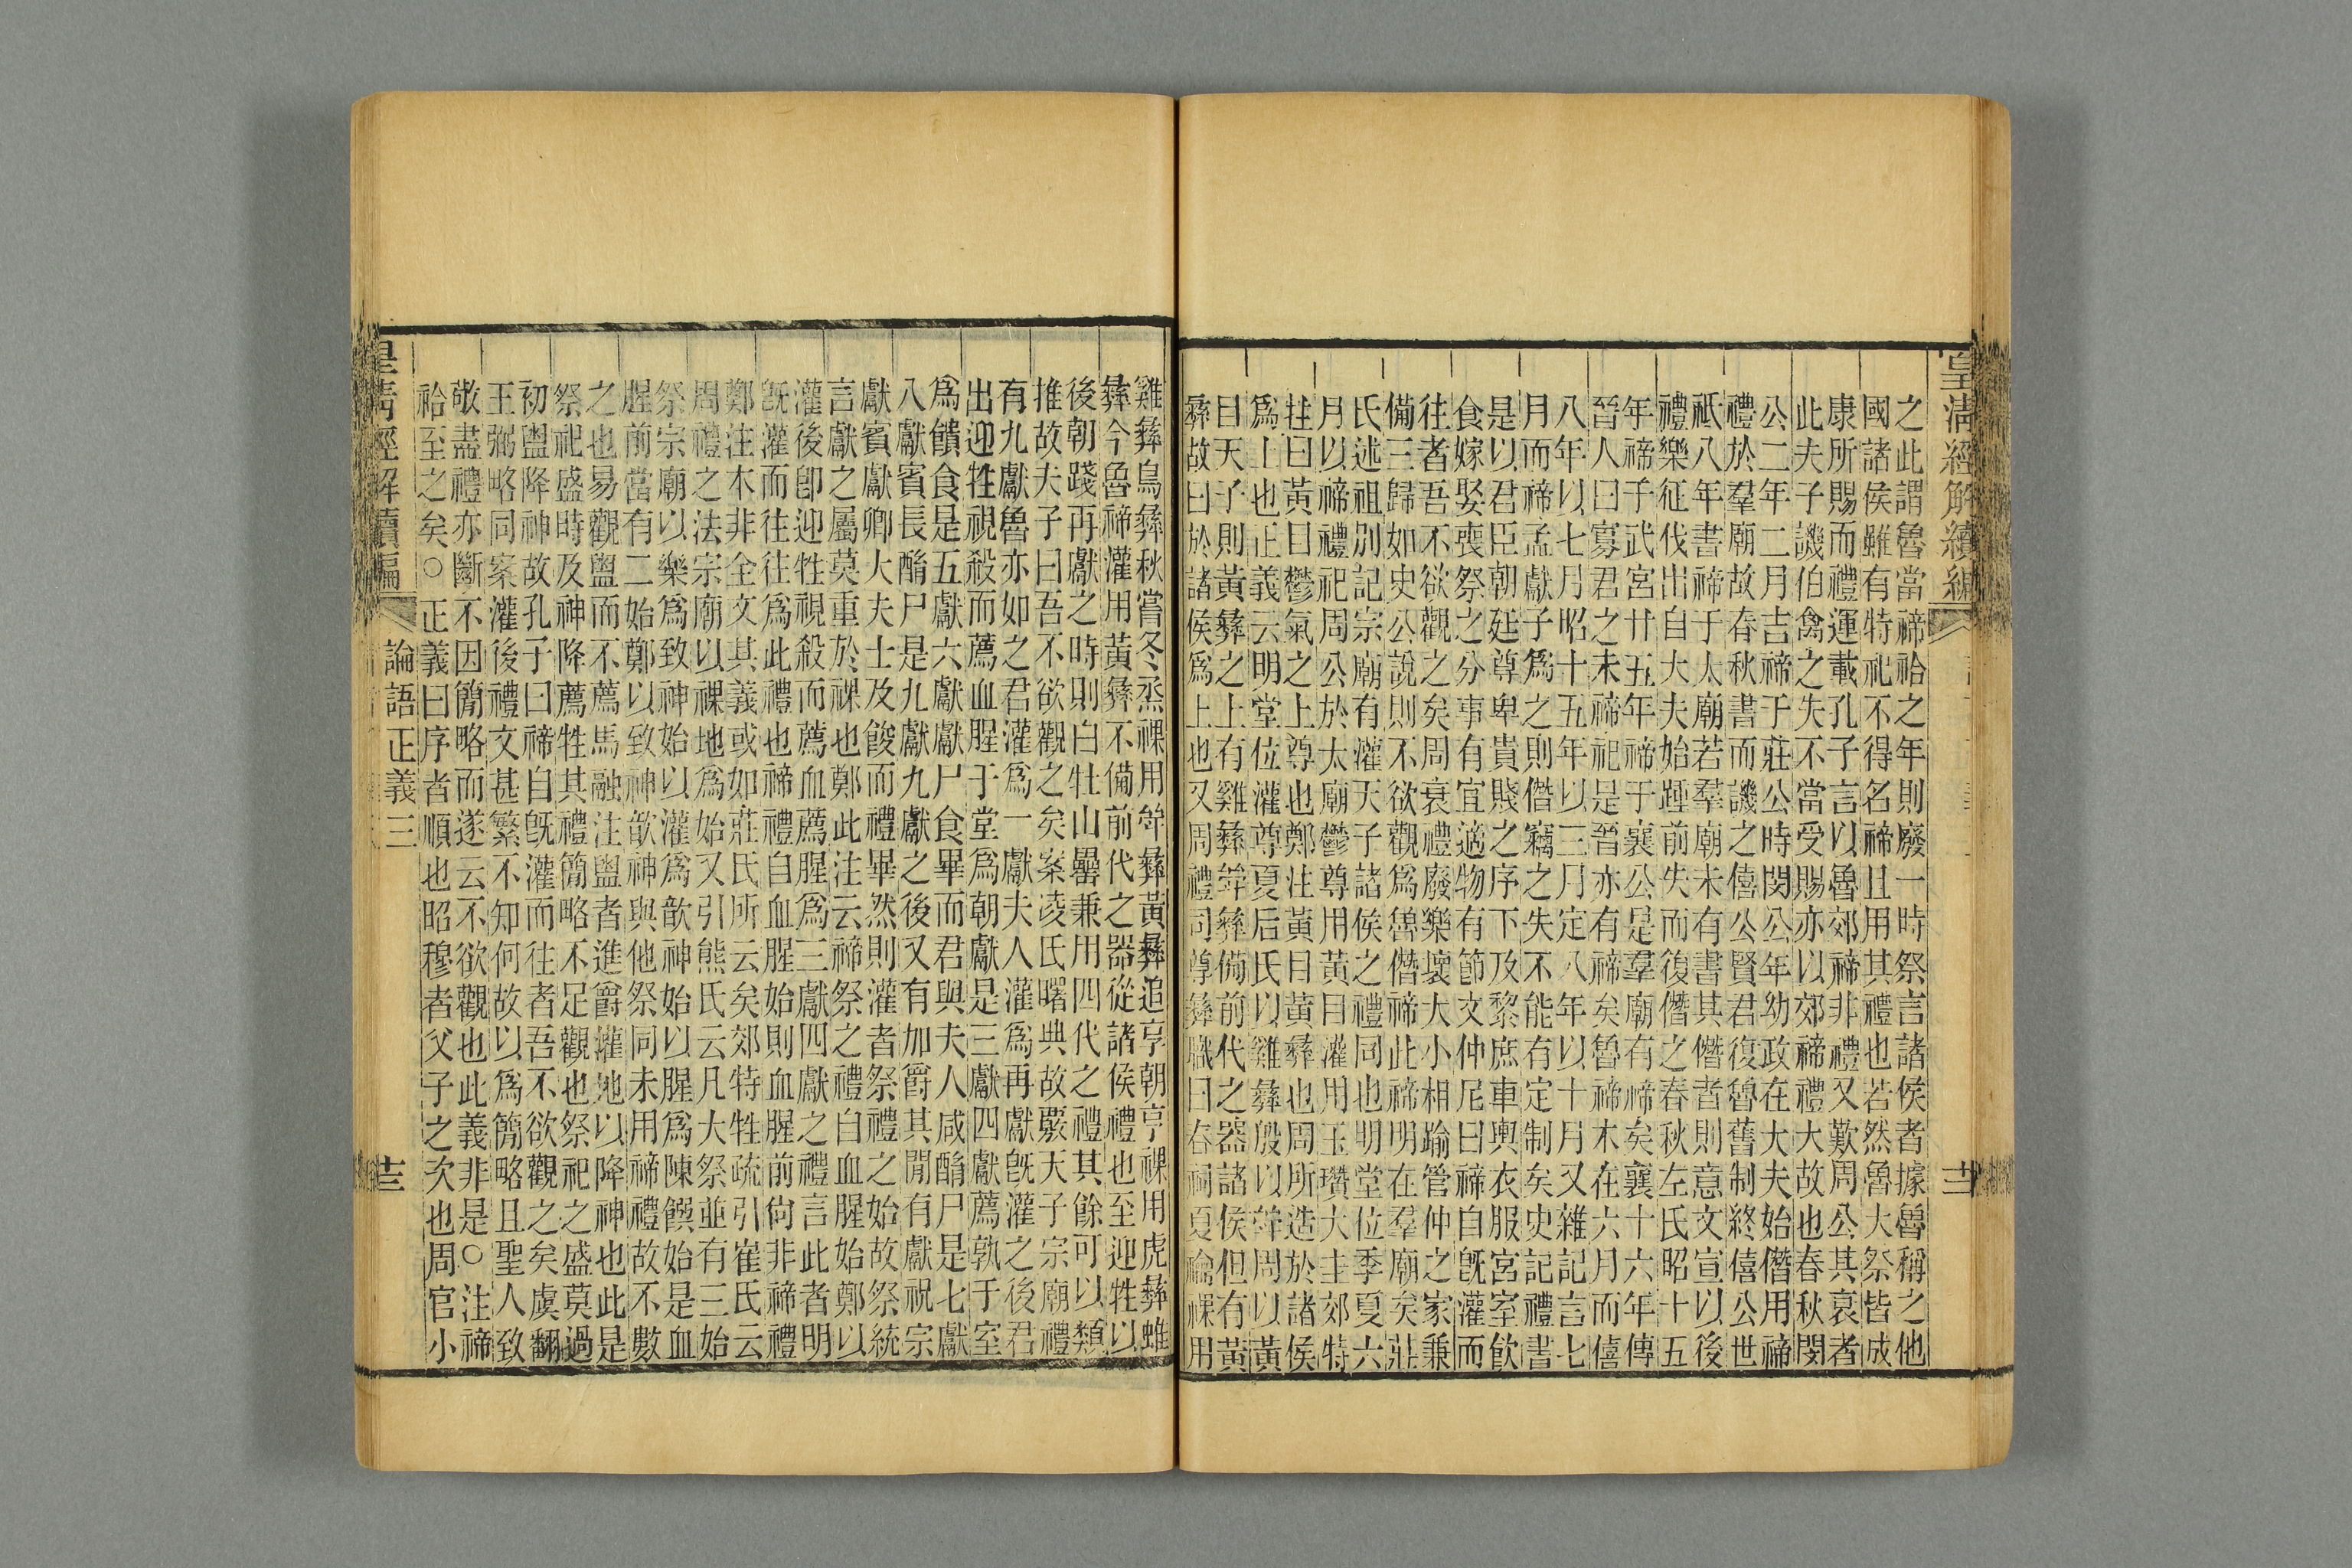 皇清經解續編
之此謂魯當禘祫之年則廢一時祭言諸侯者據魯稱之他
國諸侯雖有特祀不得名禘且用其禮也若然魯大祭皆成
康所賜而禮運載孔子言以魯郊禘非禮又歎周公其衰者
此夫子譏伯禽之失不當受賜亦以郊禘禮大故也春秋閔
公二年二月吉禘于莊公時閔公年幼政在大夫始僭用禘
禮於羣廟故春秋書而譏之僖公賢君復魯舊制終僖公世
祇八年書禘于太廟若羣廟未有書其僭者則意文宣以後
禮樂征伐出自大夫始踵前失而復僭之春秋左氏昭十五
年禘于武宮廿五年禘于襄公是羣廟有禘矣襄十六年傳
晉人曰寡君之未禘祀是晉亦有禘矣魯禘本在六月而僖
八年以七月昭十五年以三月定八年以十月又雜記言七
月而禘孟獻子爲之則僭竊之失不能有定制矣史記禮書
是以君臣朝廷尊卑貴賤之序下及黎庶車輿衣服宮室飲
食嫁娶喪祭之分事有宜適物有節文仲尼曰禘自旣灌而
往者吾不欲觀之矣周衰禮廢樂壞大小相踰管仲之家兼
備三歸如史公說則不欲觀爲魯僭禘此禘明在羣廟矣莊
氏述祖別記宗廟有灌天子諸侯之禮同也明堂位季夏六
月以禘禮祀周公於太廟鬱尊用黃目灌用玉瓚大圭郊特
牲曰黃目鬱氣之上尊也鄭注黃目黃彝也周所造於諸侯
爲上也正義云明堂位灌尊夏后氏以雞彝殷以斝周以黃
目天子則黃彝之上有雞彝斝彝備前代之器諸侯但有黃
彝故曰於諸侯爲上也又周禮司尊彝職曰春祠夏禴祼用
雞彝鳥彝秋嘗冬烝祼用斝彝黃彝追享朝享祼用虎彝蜼
彝今魯禘灌用黃彝不備前代之器從諸侯禮也至迎牲以
後朝踐再獻之時則白牡山罍兼用四代之禮其餘可以類
推故夫子曰吾不欲觀之矣案凌氏曙典故覈天子宗廟禮
有九獻魯亦如之君灌爲一獻夫人灌爲再獻旣灌之後君
出迎牲視殺而薦血腥于堂爲朝獻是三獻四獻薦孰于室
爲饋食是五獻六獻獻尸食畢而君與夫人咸酳尸是七獻
八獻賓長酳尸是九獻九獻之後又有加爵其閒有獻祝宗
獻賓獻卿大夫士及餕而禮畢然則灌者祭禮之始故祭統
言獻之屬莫重於祼也鄭此注云禘祭之禮自血腥始鄭以
灌後卽迎牲視殺而薦血薦腥爲三獻四獻之禮言此者明
旣灌而往往爲此禮也禘禮自血腥始則血腥前尙非禘禮
鄭注本非全文其義或如莊氏所云矣郊特牲疏引崔氏云
周禮之法宗廟以祼地爲始又引熊氏云凡大祭並有三始
祭宗廟以樂爲致神始以灌爲歆神始以腥爲陳饌始是血
腥前當有二始鄭以致神歆神與他祭同未用禘禮故不數
之也易觀盥而不薦馬融注盥者進爵灌地以降神也此是
祭祀盛時及神降薦牲其禮簡略不足觀也祭祀之盛莫過
初盥降神故孔子曰禘自旣灌而往者吾不欲觀之矣虞翻
王弼略同案灌後禮文甚繁不知何故以爲簡略且聖人致
敬盡禮亦斷不因簡略而遂云不欲觀也此義非是○注禘
祫至之矣○正義曰序者順也昭穆者父子之次也周官小
皇清經解續編
論語正義三